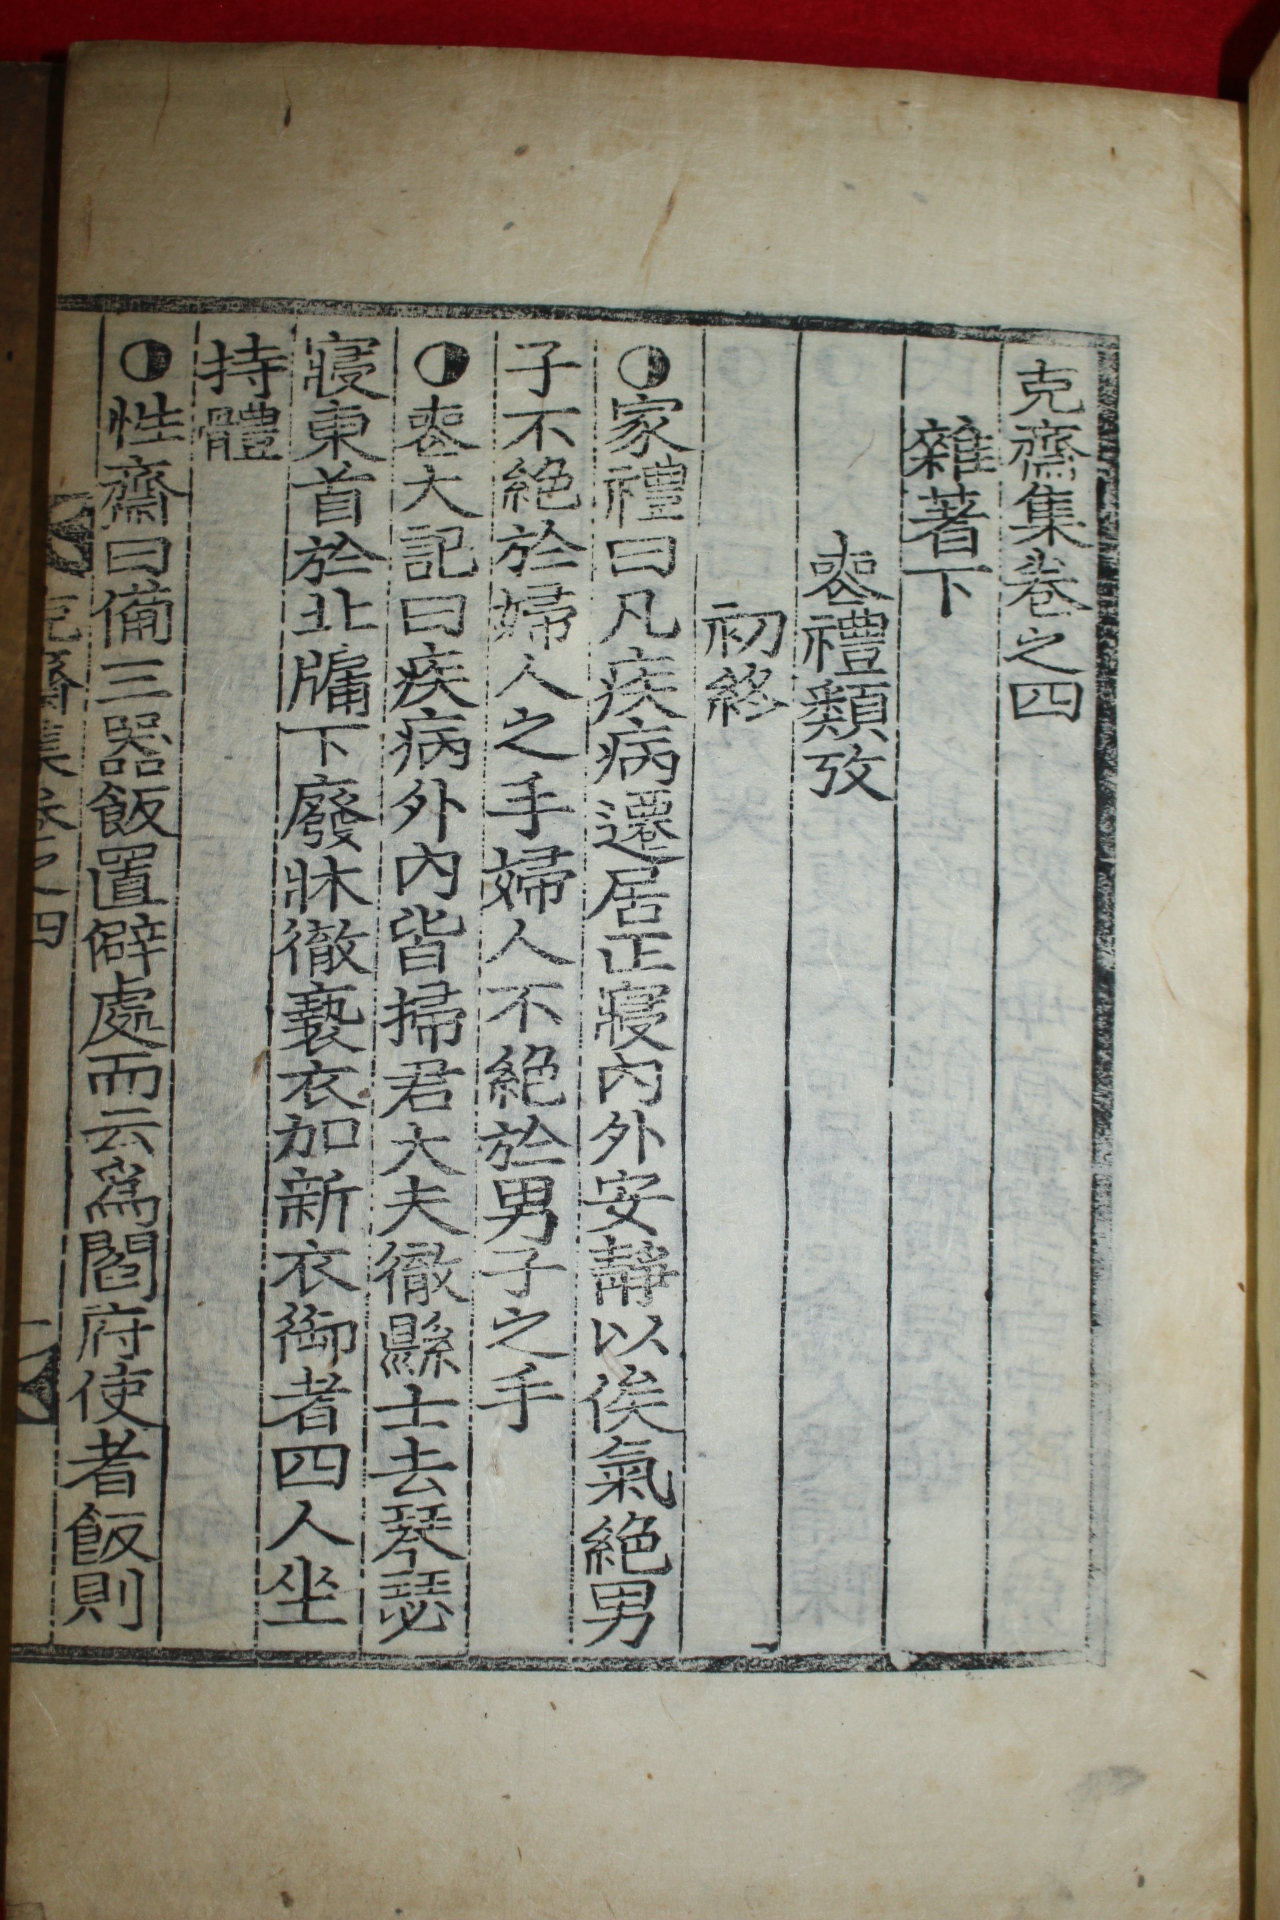 克齋集卷之四
雜著下
喪禮類攷
初終
◑家禮曰凡疾病遷居正寢內外安靜以俟氣絶男
子不絶於婦人之手婦人不絶於男子之手
◑喪大記曰疾病外內皆掃君大夫徹縣士去琴瑟
寢東首於北牖下廢牀徹褻衣加新衣御者四人坐
持體
◑性齋曰備三器飯置僻處而云爲閻府使者飯則
克齋集卷之四 一